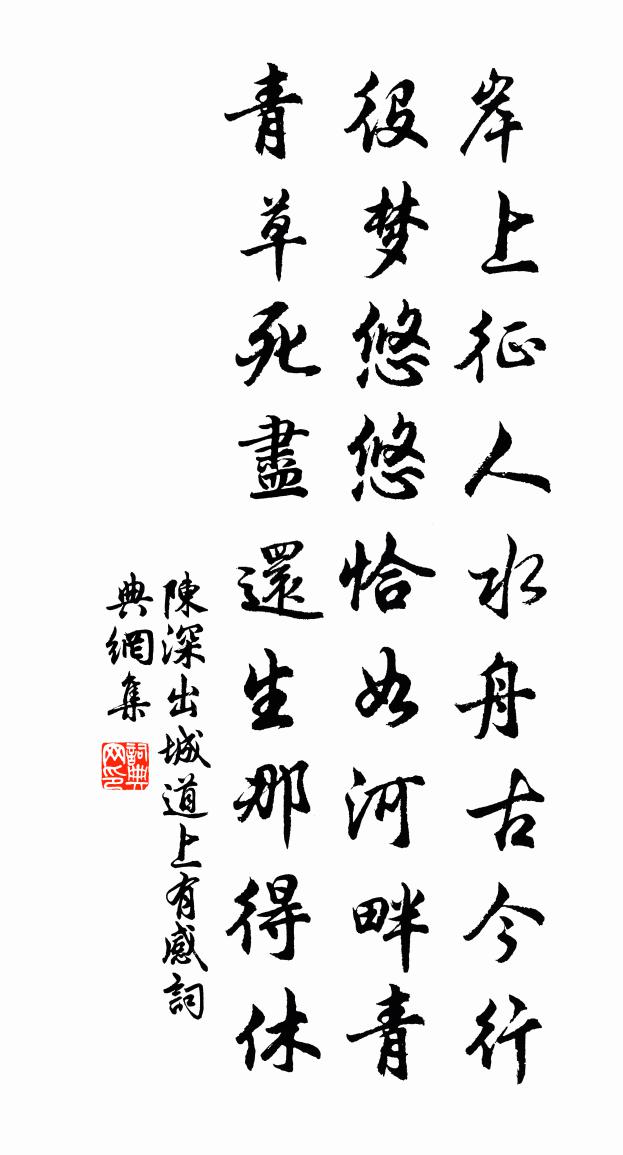 岸上征人水舟古今行
役梦悠悠恰如河畔青
青草死盡還生那得休
陳深出城道上有感詞
典網集
詞典网印